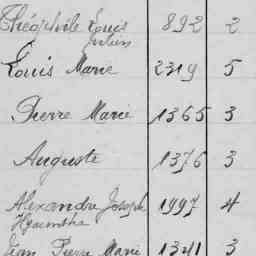 Théophile Louis 892 2
Louis Marie 2319 5
Pierre Marie 1365 3
Auguste 1376 3
Alexandre Joseph 1997 4
Hyacinthe
Jean Pierre Marie 1341 3